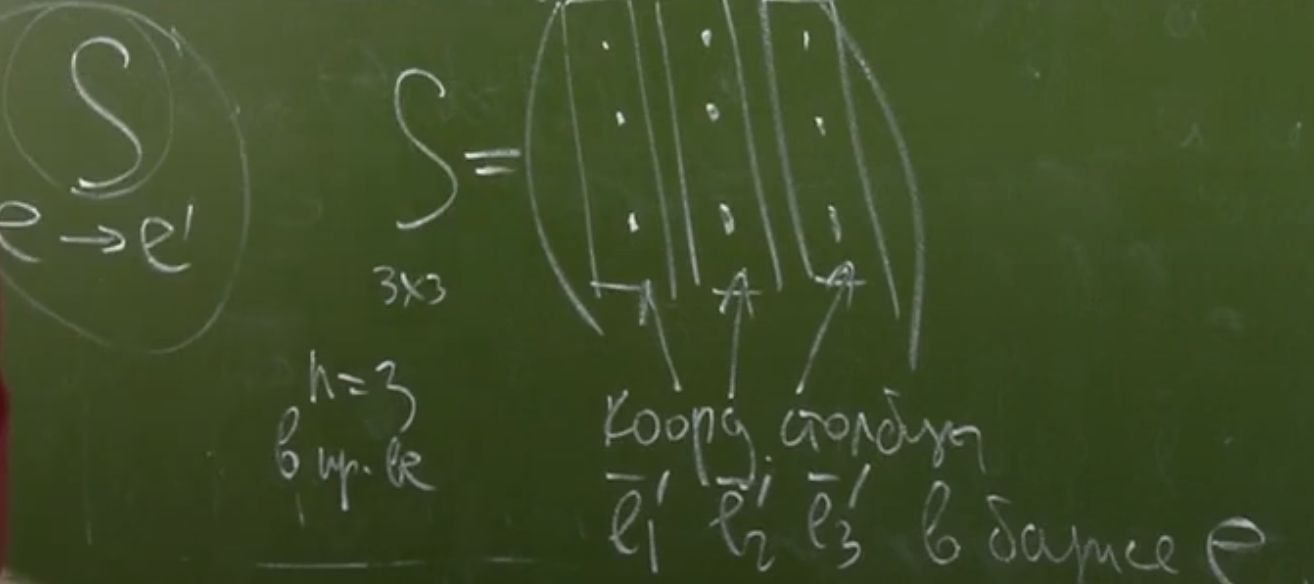 S
e → e'
S =
3×3
n = 3
в пр-ве
коорд. столбцы
e̅₁' e̅₂' e̅₃' в базисе e